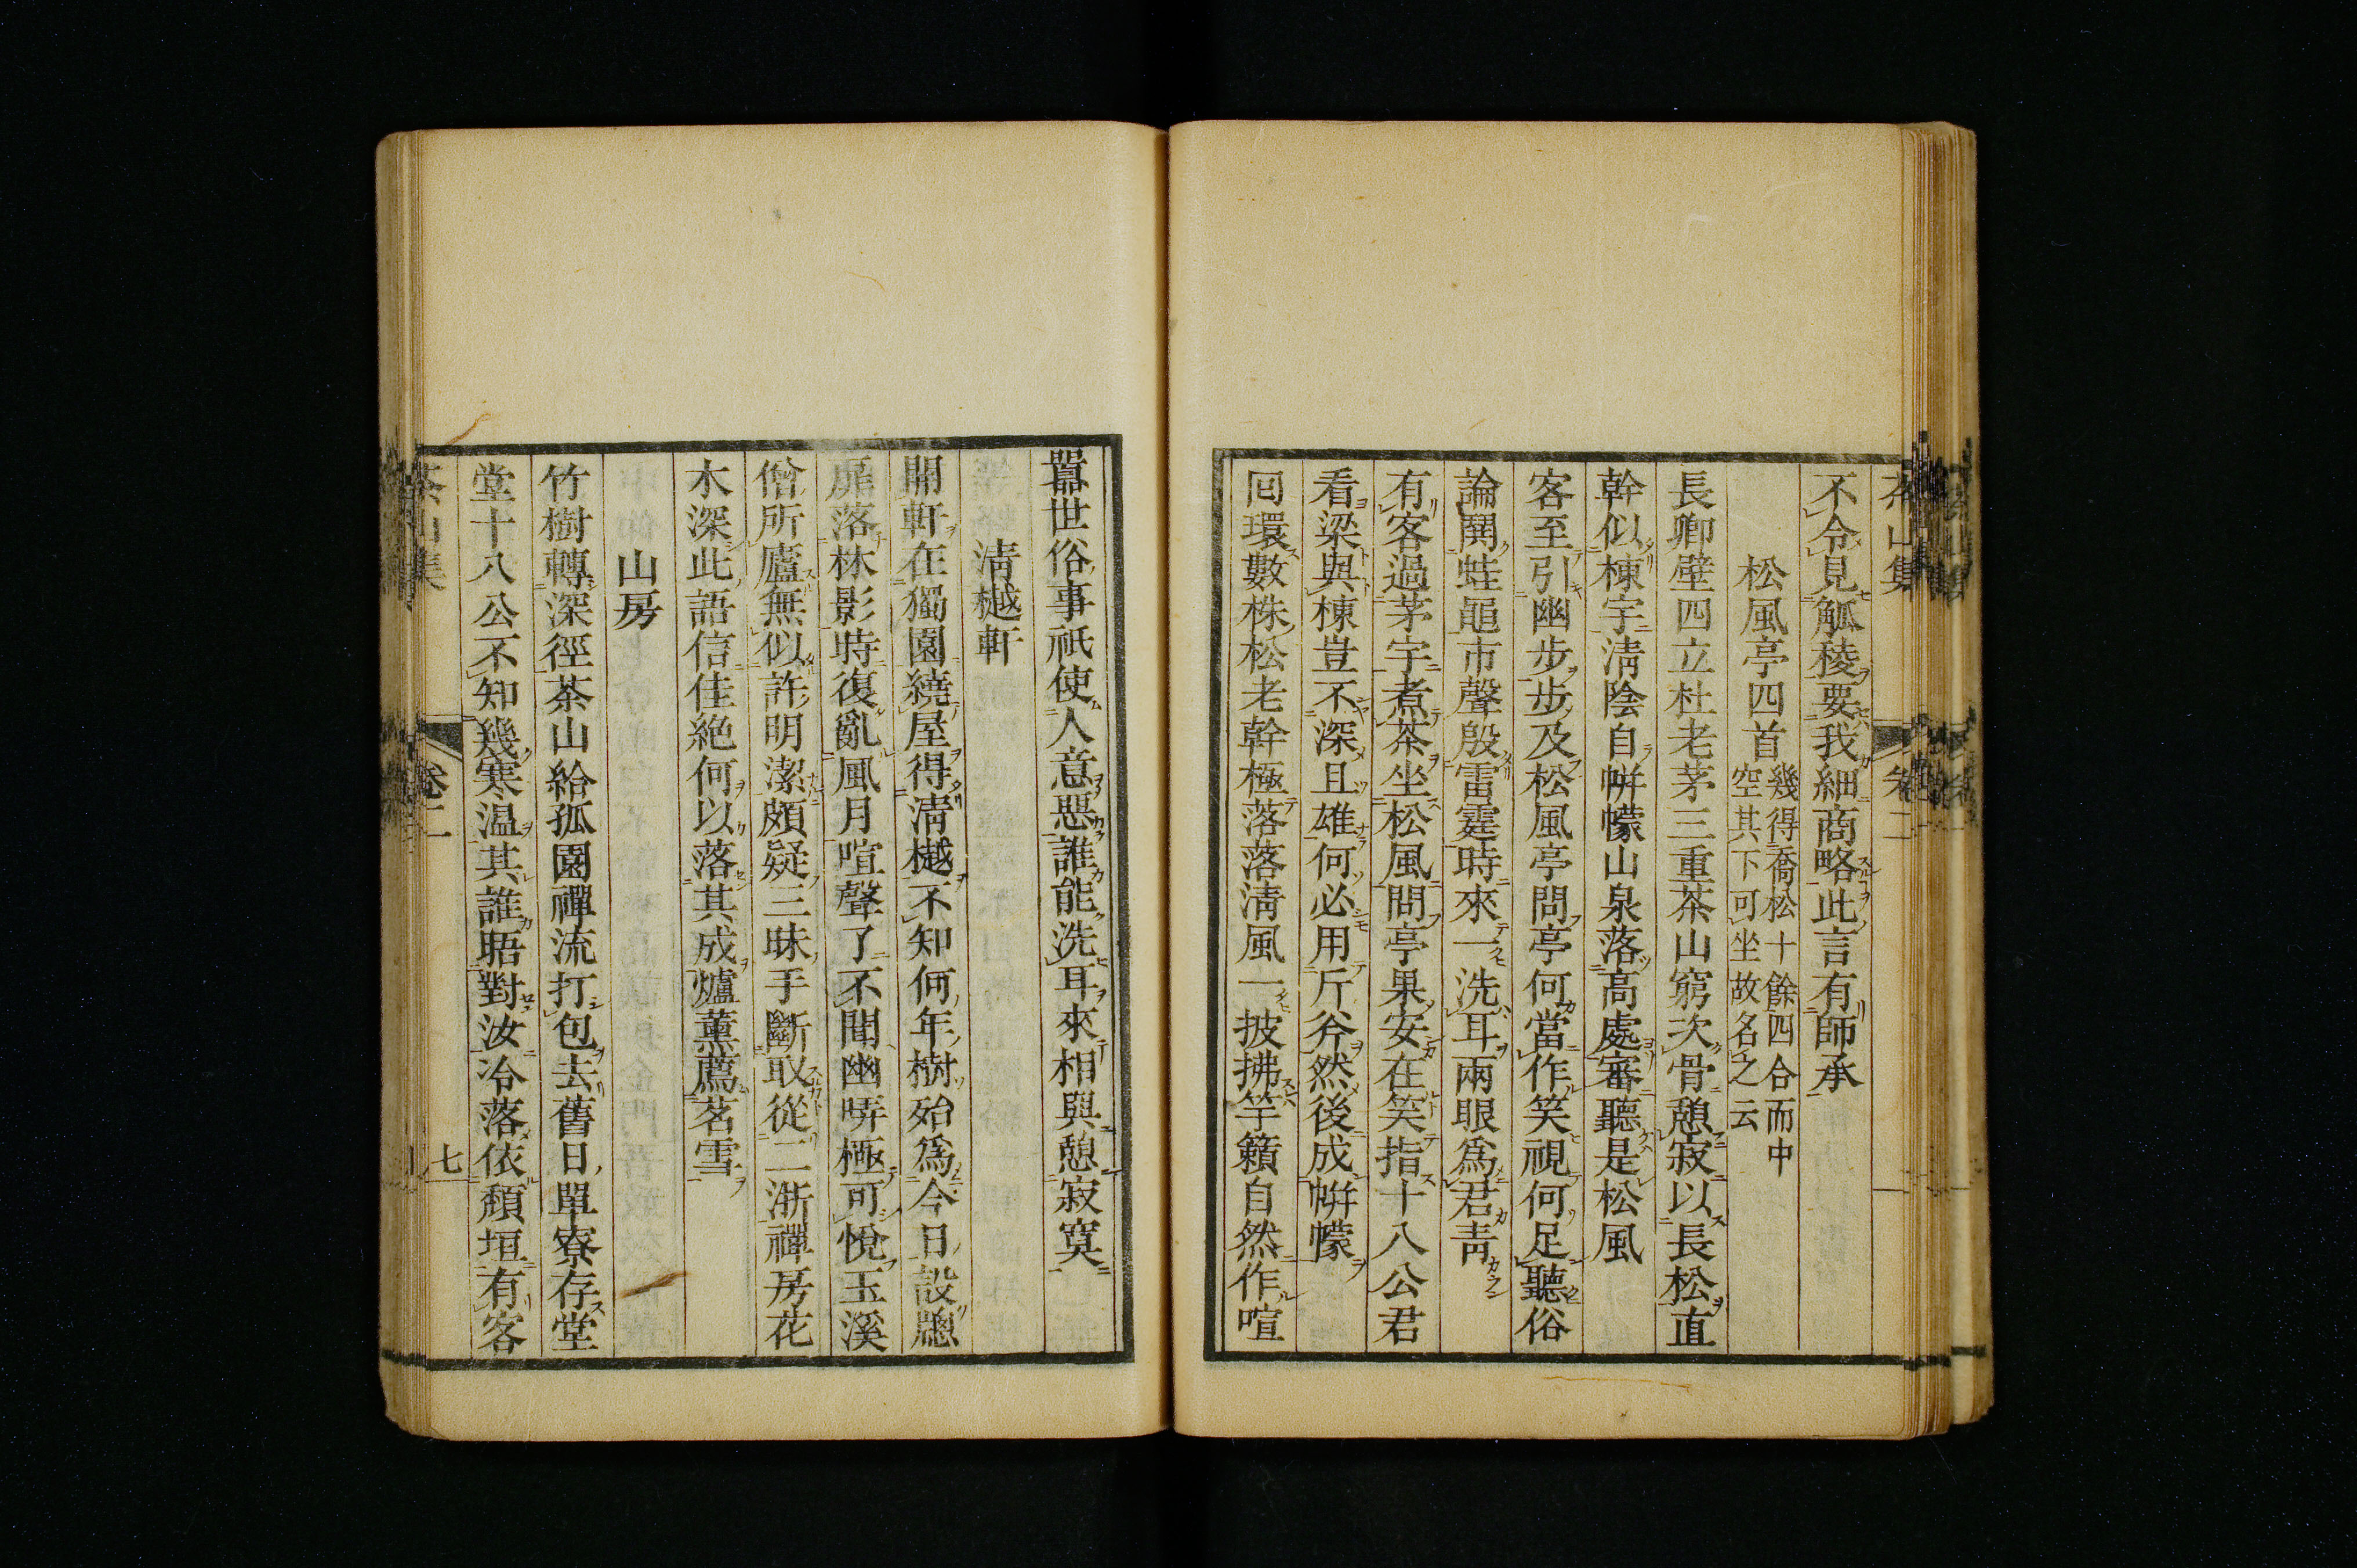 茶山集 卷二
不令見觚稜要我細商略此言有師承
松風亭四首 幾得喬松十餘四合而中
空其下可坐故名之云
長卿壁四立杜老茅三重茶山窮次骨憩寂以長松直
幹似棟宇淸陰自帡幪山泉落高處審聽是松風
客至引幽步步及松風亭問亭何當作笑視何足聽俗
論鬨蛙黽市聲殷雷霆時來一洗耳兩眼爲君靑
有客過茅宇煮茶坐松風問亭果安在笑指十八公君
看梁與棟豈不深且雄何必用斤斧然後成帡幪
回環數株松老幹極落落淸風一披拂竽籟自然作喧
囂世俗事祇使人意惡誰能洗耳來相與憩寂寞
淸樾軒
開軒在獨園繞屋得淸樾不知何年樹殆爲今日設牕
扉落林影時復亂風月喧聲了不聞幽哢極可悅玉溪
僧所廬無似許明潔頗疑三昧手斷取從二浙禪房花
木深此語信佳絶何以落其成爐薰薦茗雪
山房
竹樹轉深徑茶山給孤園禪流打包去舊日單寮存堂
堂十八公不知幾寒溫其誰晤對汝冷落依頹垣有客
茶山集 卷二 七